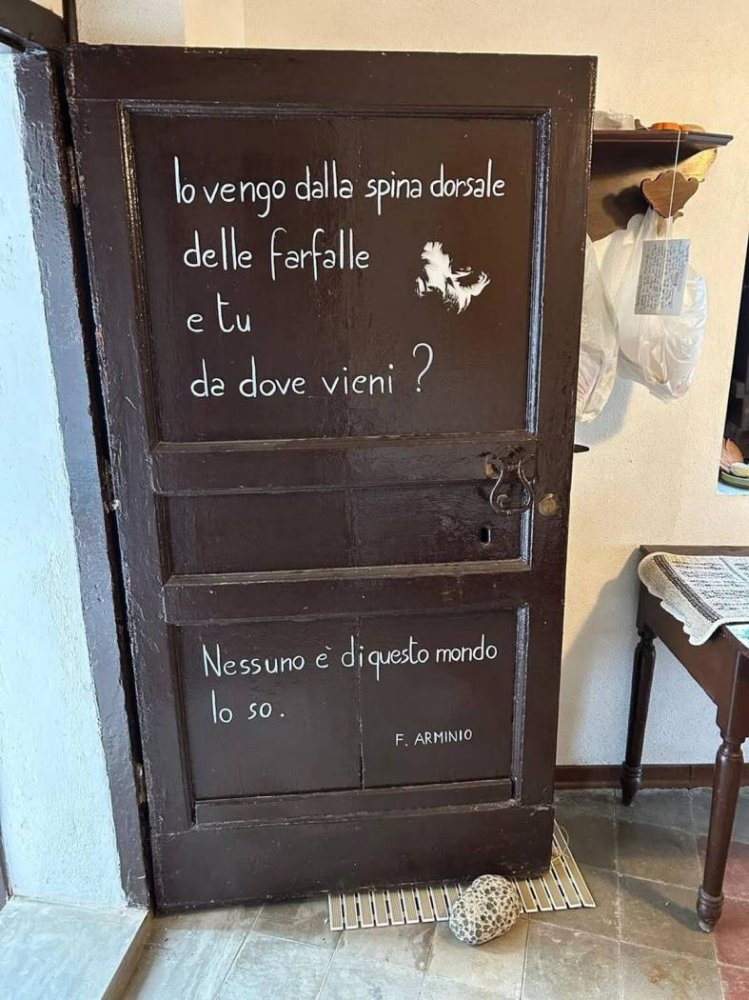 Io vengo dalla spina dorsale
delle farfalle
e tu
da dove vieni ?
Nessuno è di questo mondo
lo so.
F. ARMINIO